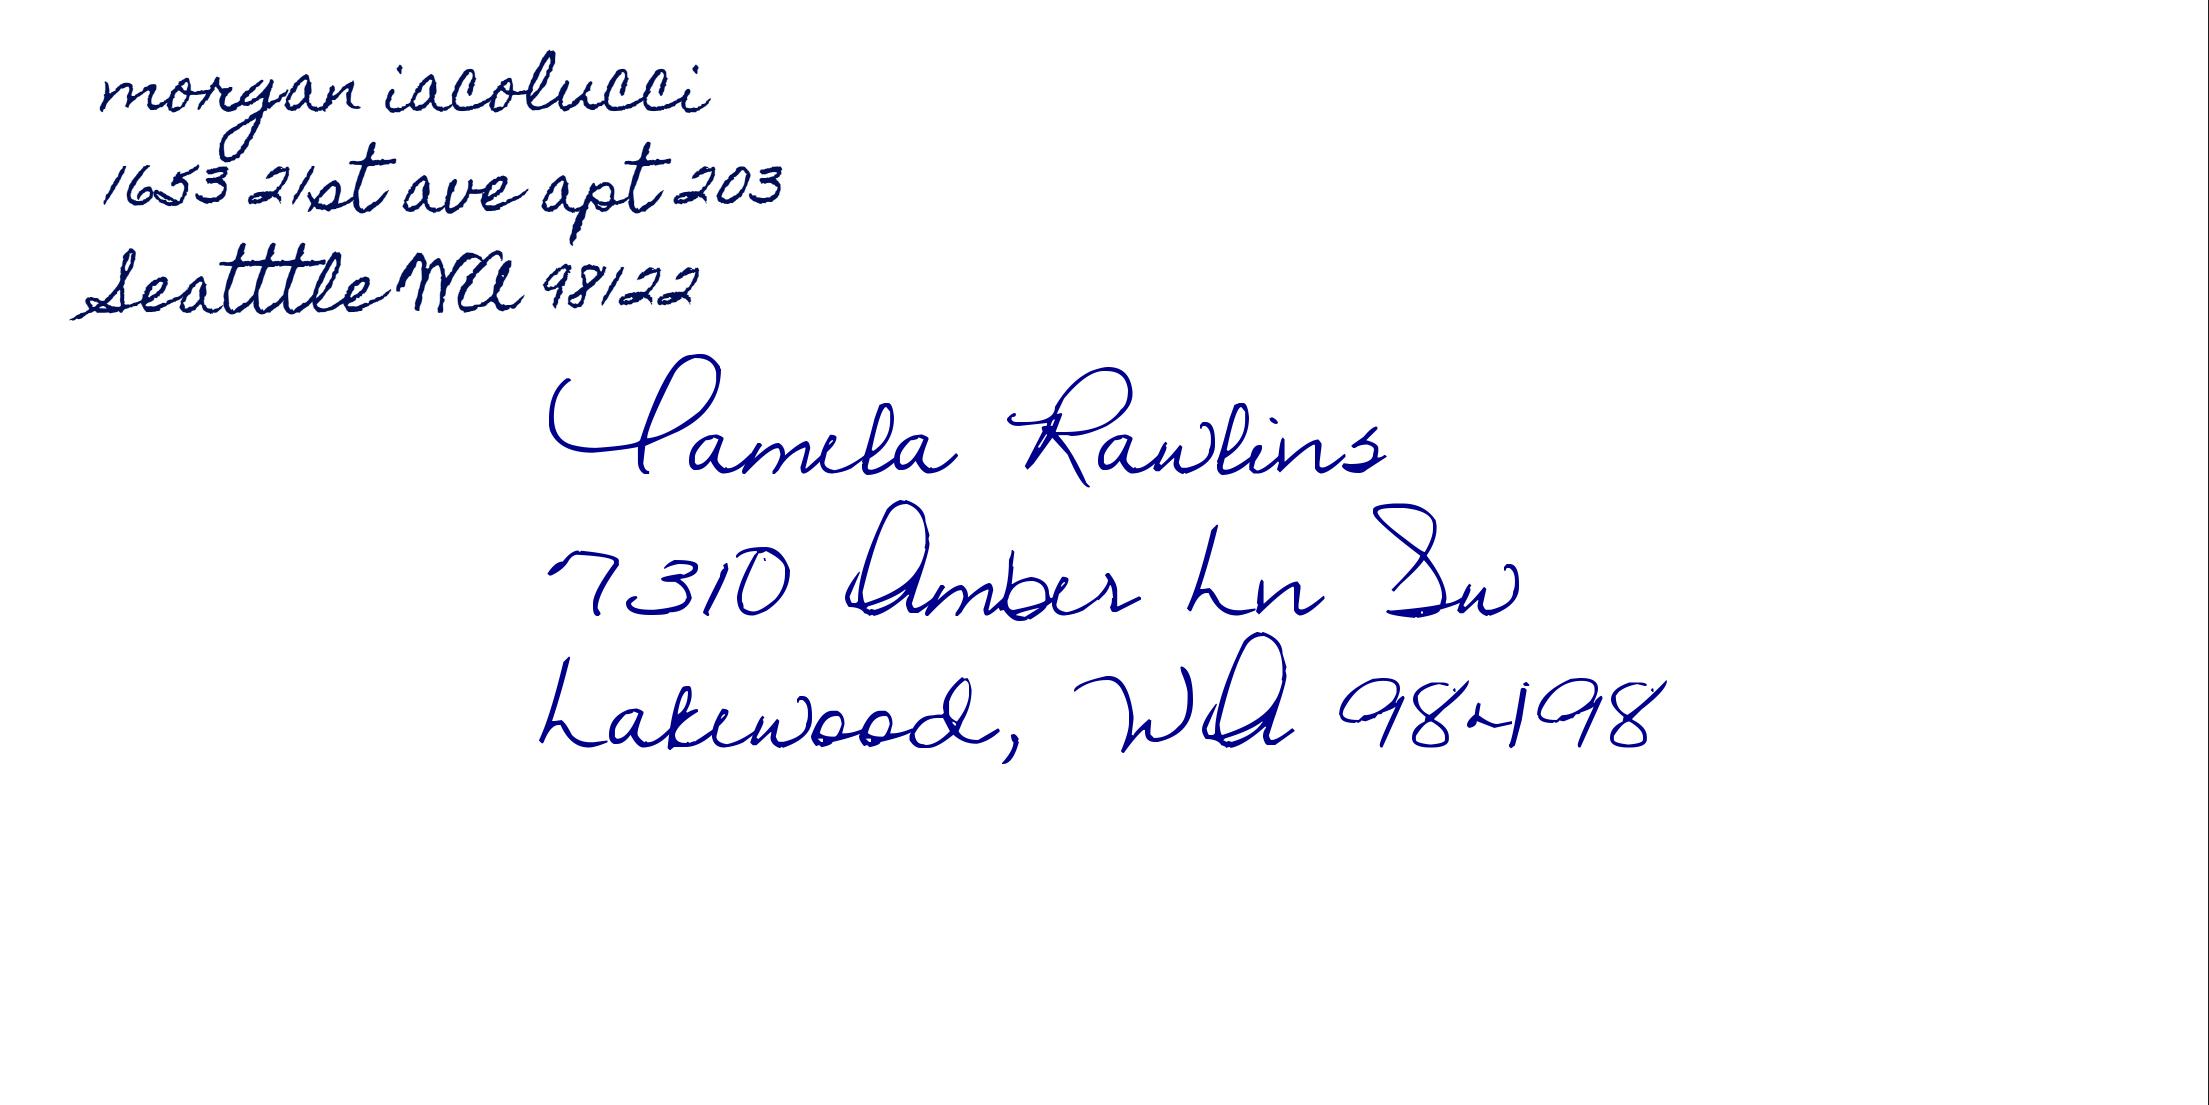 morgan iacolucci
1653 21st ave apt 203
Seatttle WA 98122
Pamela Rawlins
7310 Amber Ln Sw
Lakewood, WA 98498